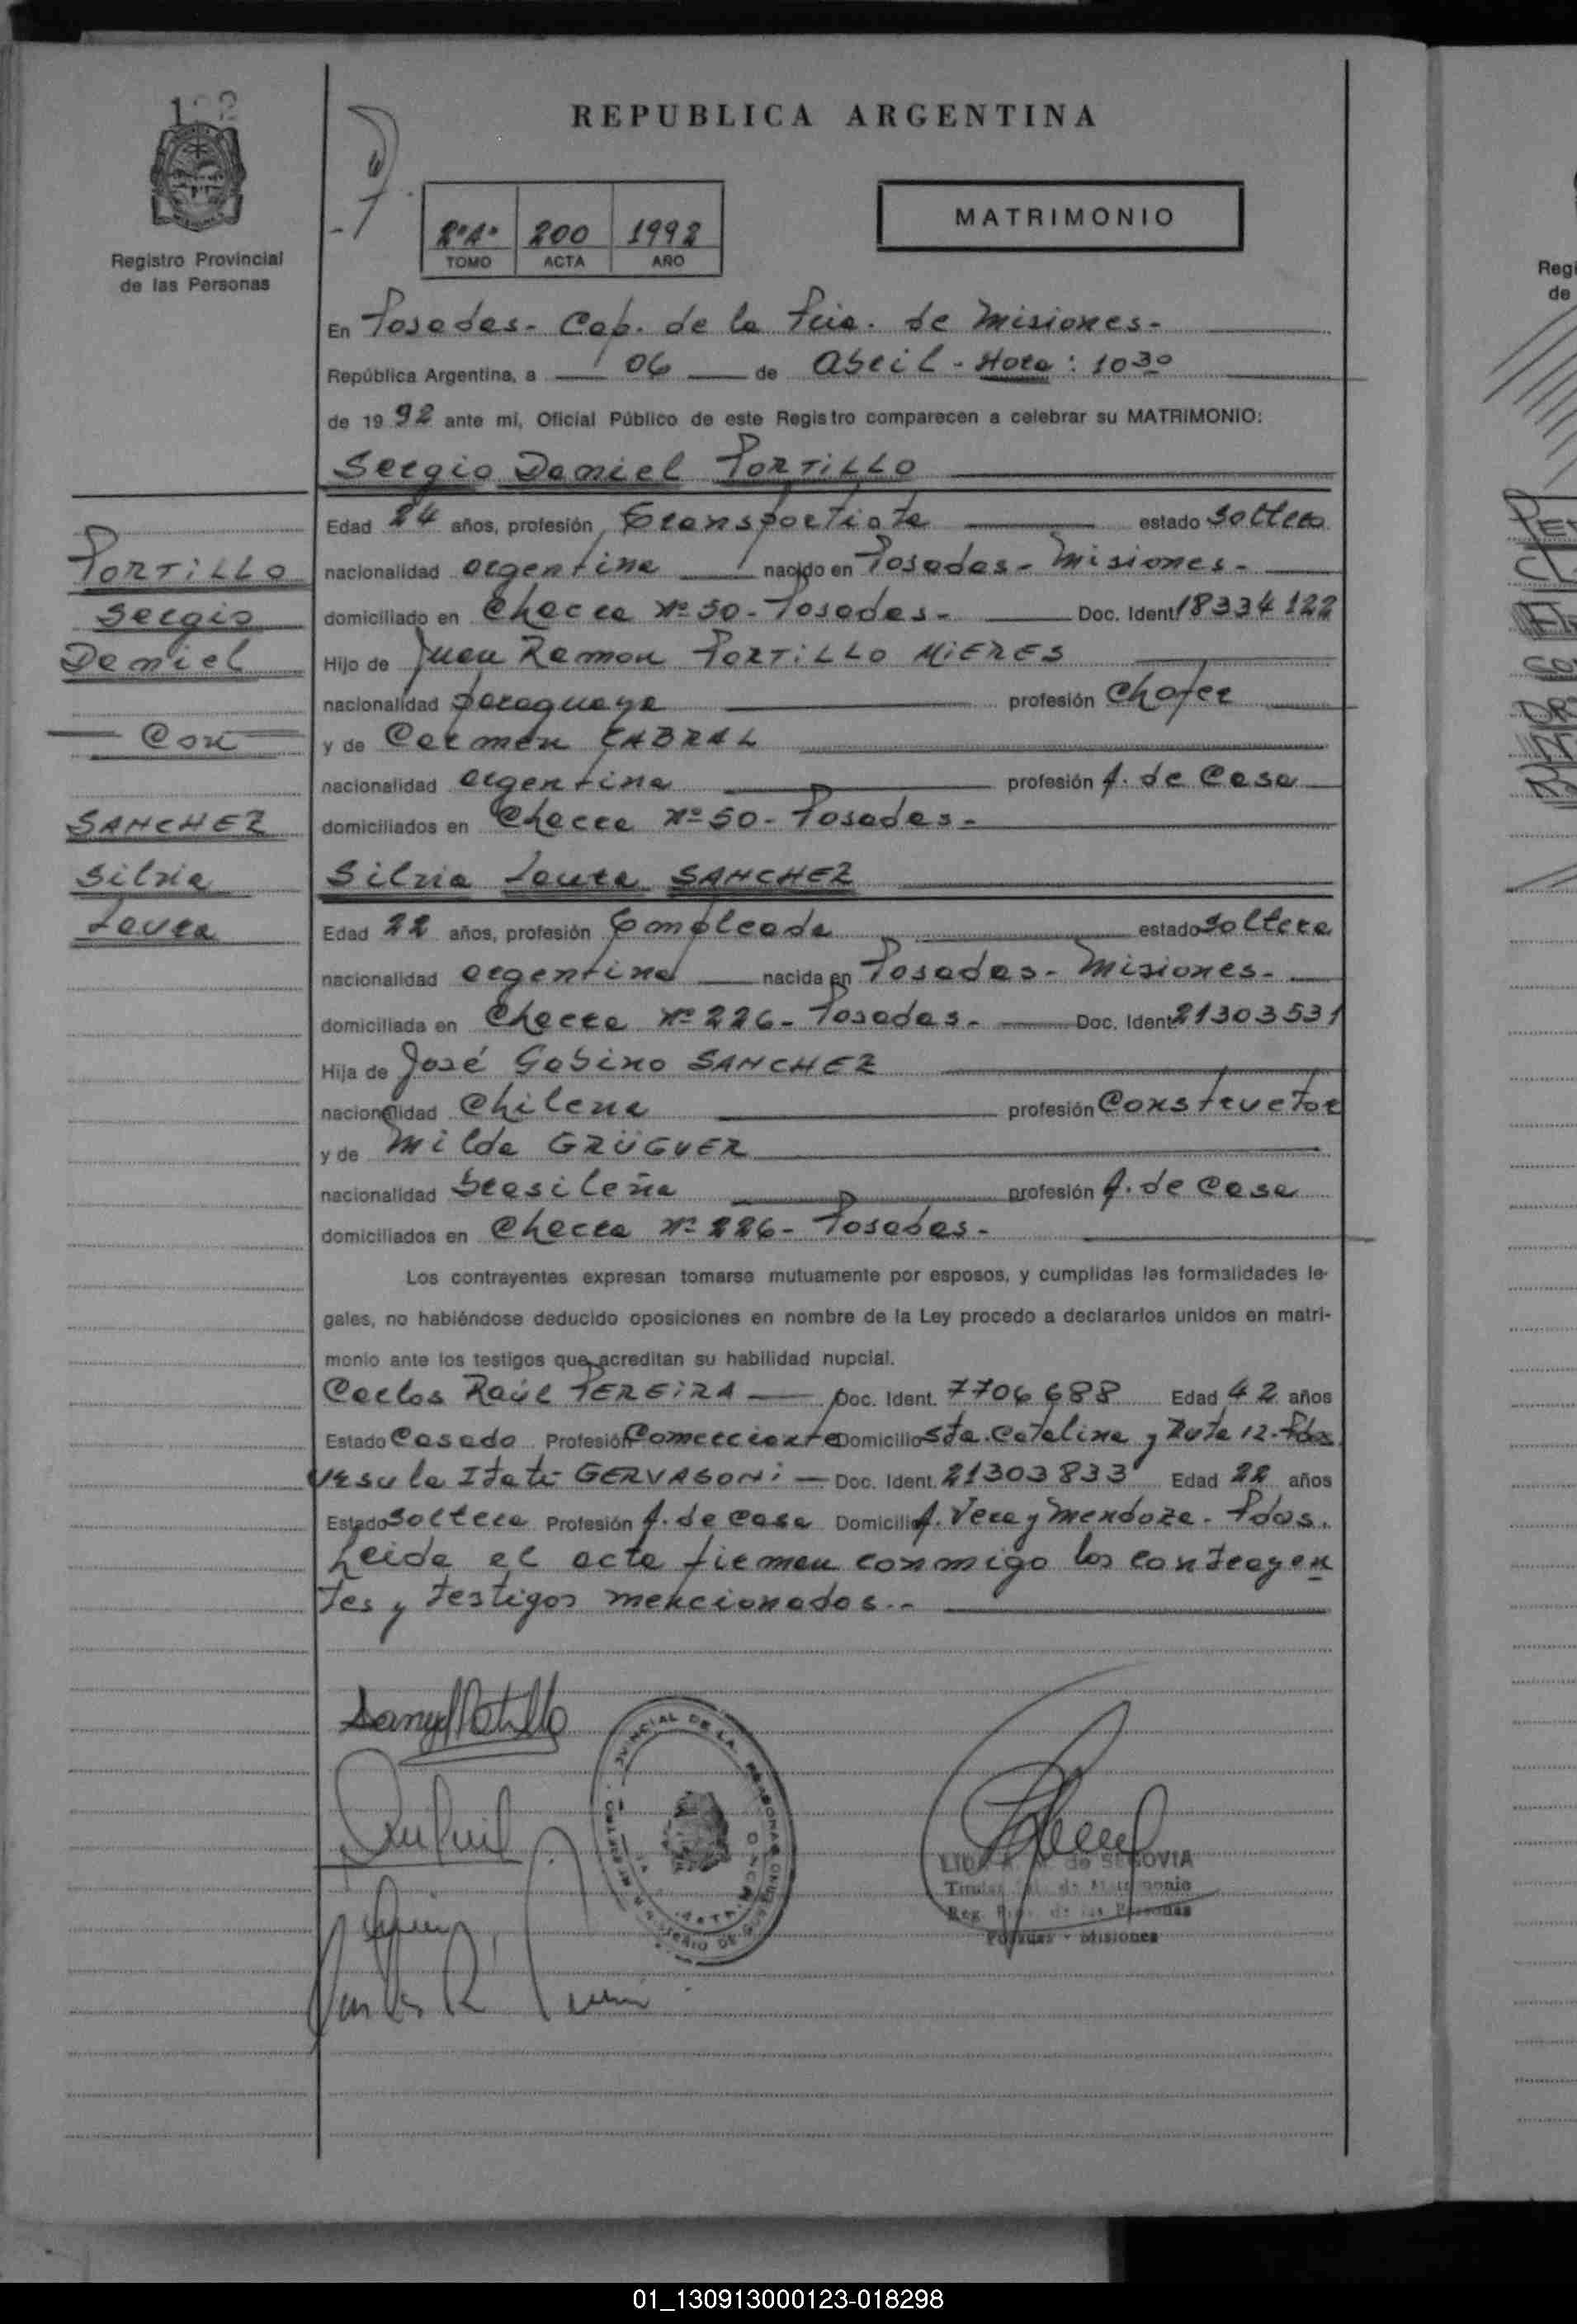 REPUBLICA ARGENTINA
MATRIMONIO
2º A° 200 1992
TOMO ACTA AÑO
Registro Provincial
de las Personas
En Posadas - Cap. de la Pcia. de Misiones -
República Argentina, a 06 de Abril - Hora : 10 30
de 19 92 ante mi, Oficial Público de este Registro comparecen a celebrar su MATRIMONIO:
Sergio Daniel PORTILLO
Edad 24 años, profesión transportista estado soltero
nacionalidad argentina nacido en Posadas - Misiones -
domiciliado en Chacra Nº 50 - Posadas - Doc. Ident. 18334122
Hijo de Juan Ramon PORTILLO MIERES
nacionalidad paraguaya profesión Chofer
y de Carmen CABRAL
nacionalidad argentina profesión A. de Casa
domiciliados en Chacra Nº 50 - Posadas -
Silvia Laura SANCHEZ
Edad 22 años, profesión Empleada estado soltera
nacionalidad argentina nacida en Posadas - Misiones -
domiciliada en Chacra Nº 226 - Posadas - Doc. Ident. 21303531
Hija de José Gabino SANCHEZ
nacionalidad Chilena profesión Constructor
y de Milda GRÜGUER
nacionalidad brasileña profesión A. de Casa
domiciliados en Chacra Nº 226 - Posadas -
Los contrayentes expresan tomarse mutuamente por esposos, y cumplidas las formalidades le-
gales, no habiéndose deducido oposiciones en nombre de la Ley procedo a declararlos unidos en matri-
monio ante los testigos que acreditan su habilidad nupcial.
Carlos Raúl PEREIRA Doc. Ident. 7706688 Edad 42 años
Estado Casado Profesión Comerciante Domicilio Sta. Catalina y Ruta 12 - Pdas
Ursula Itati GERVASONI Doc. Ident. 21303833 Edad 22 años
Estado soltera Profesión A. de Casa Domicilio A. Vera y Mendoza - Pdas.
Leida el acta firman conmigo los contrayen
tes y testigos mencionados.-
PORTILLO
Sergio
Daniel
Con
SANCHEZ
Silvia
Laura
de SEGOVIA
Titular de Matrimonio
Reg. Prov. de las Personas
Posadas - Misiones
01_130913000123-018298